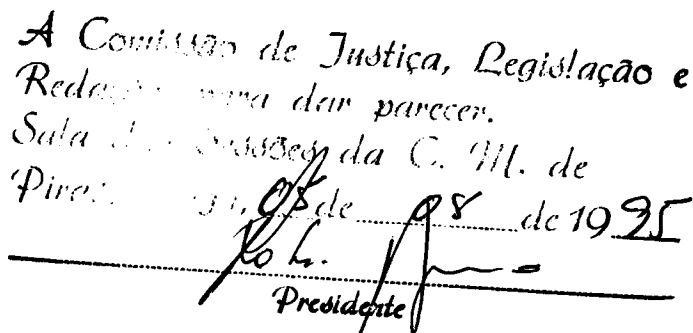 A Comissão de Justiça, Legislação e
Redação para dar parecer.
Sala das Sessões da C. M. de
de 08 de 1995
Presidente